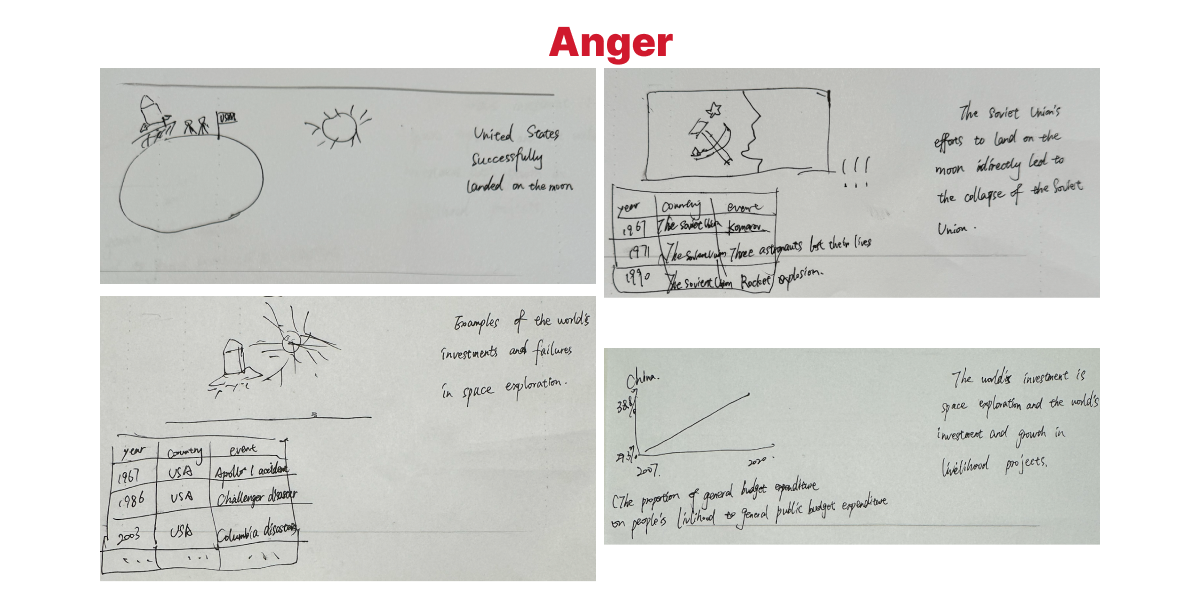 Anger
USA
United States
Successfully
landed on the moon
The Soviet Union's
efforts to land on the
moon idirectly led to
the collapse of the Soviet
Union.
! ! !
year country event
1967 The Soviet Union Komarov
1971 The Soviet Union Three astronauts lost their lives
1990 The Soviet Union Rocket explosion.
Examples of the world's
investments and failures
in space exploration.
year country event
1967 USA Apollo 1 accident
1986 USA Challenger disaster
2003 USA Columbia disaster
... ... ...
China.
2007. 2020.
(The proportion of general budget expenditure
on people's livlihood to general public budget expenditure
The world's investment is
space exploration and the world's
investment and growth in
livelihood projects.